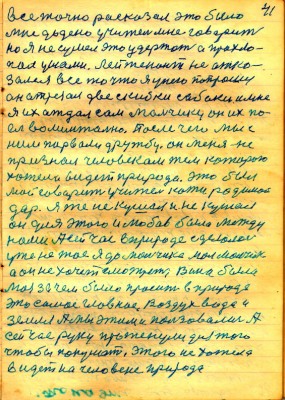 41
все точно рассказал это было
мне додено учител мне говорит
но я не сумел это удержат а прохло-
пал ушами. Лейтенант не отка-
зался все то что я у него попрошу
он отрезал две скибки сабаки и мне
я их атдал сам малчику он их по-
ел моминтално. После чего мы с
ним парвали дружбу, он меня не
признал человекам тем которого
хотела видет природа. Это был
мой говарит учител кати родимое
дар. Я те не кушал и не кушал
он для этого и любов была между
нами А сейчас в природе сделалос
уже не тое Я до малчика
а он не хочит смотрет, Вина была
моя зачем было просит в природе
это самое главное Воздух вада и
земля А мы этими ползовалис А
сейчас руку протянули для того
чтобы покушат, Этого не хотела
видет на человеке природа